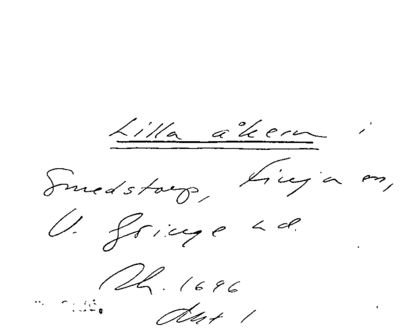 Lilla åkern i
Smedstorp, Finja sn,
V. Göinge hd.
Dh. 1696
Akt 1